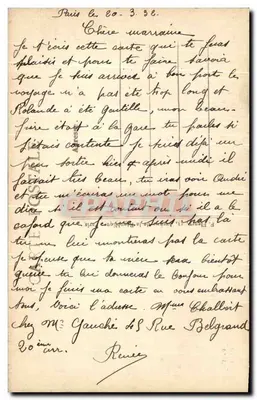 Paris le 20.3.32.
Chère marraine
Je t'écris cette carte qui te feras
plaisir et pour te faire savoir
que je suis arrivée à bon port le
voyage n'a pas été trop long et
Rolande a été gentille, mon beau-
père était à la gare tu parles si
j'étais contente je suis déjà un
peu sortie hier et après midi il
faisait très beau, tu vois André
et tu m'écriras un mot pour me
dire s'il est content ou s'il a le
cafard que je suis pas là
tu lui montreras pas la carte
je pense que ta mieux bientôt
tu lui donneras le bonjour pour
moi je finis ma carte en vous embrassant
tous, voici l'adresse. Mme Challoit
chez Mr Gauché 45 Rue Belgrand
20ème arr.
Renée
CARTE POSTALE